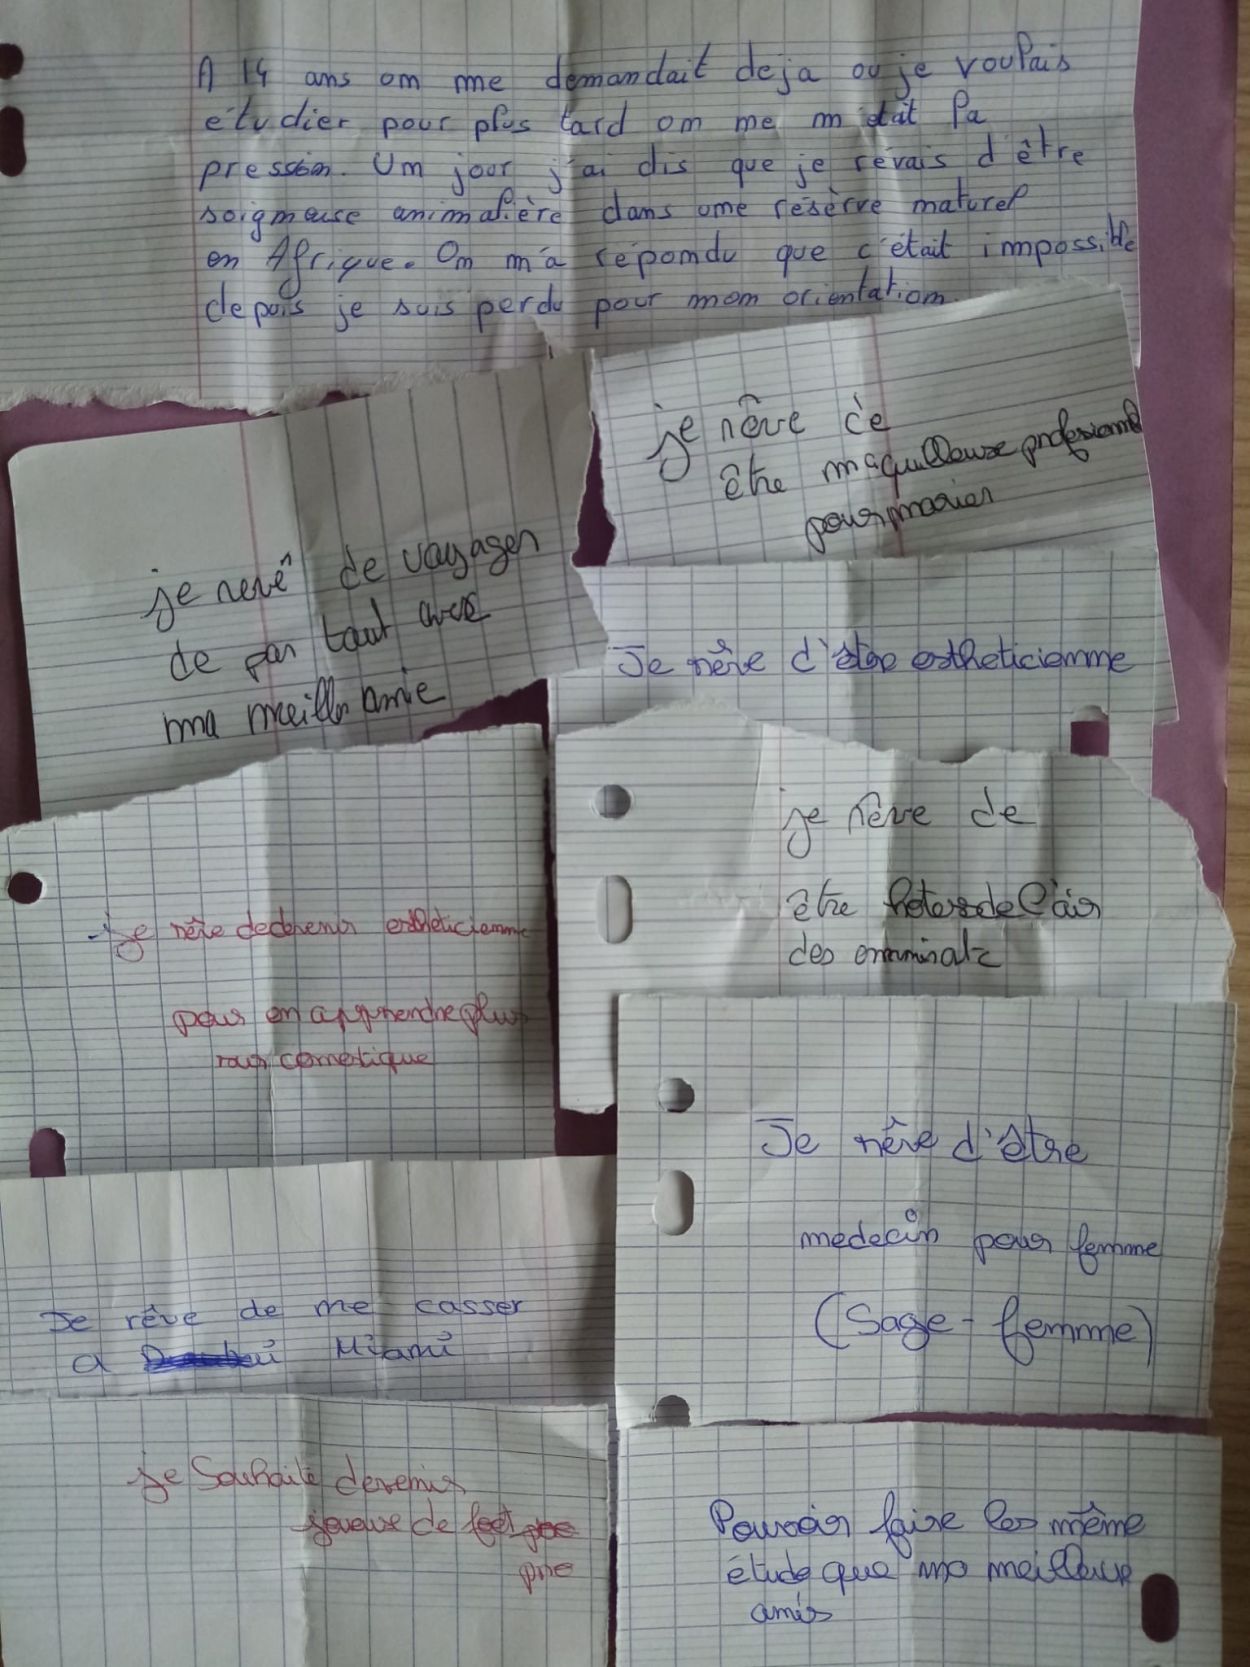 A 14 ans on me demandait deja ou je voulais
étudier pour plus tard on me metait la
pression. Un jour j'ai dis que je rêvais d'être
soigneuse animalière dans une résèrve naturel
en Afrique. On m'a répondu que c'était impossible
depuis je suis perdu pour mon orientation.
je rêve de
être maquilleuse profesionnel
pour marier
je revê de vayager
de par tout avec
ma meiller amie
Je rêve d'être estheticienne
je rêve de devenir estheticienne
pour en apprendre plus
cometique
je rêve de
être de l'air
des
Je rêve d'être
medecin pour femme
(Sage-femme)
Je rêve de me casser
a Miami
je Souhaite devenir
joueuse de foot
pro
Pouvoir faire les même
étude que ma meilleure
amis